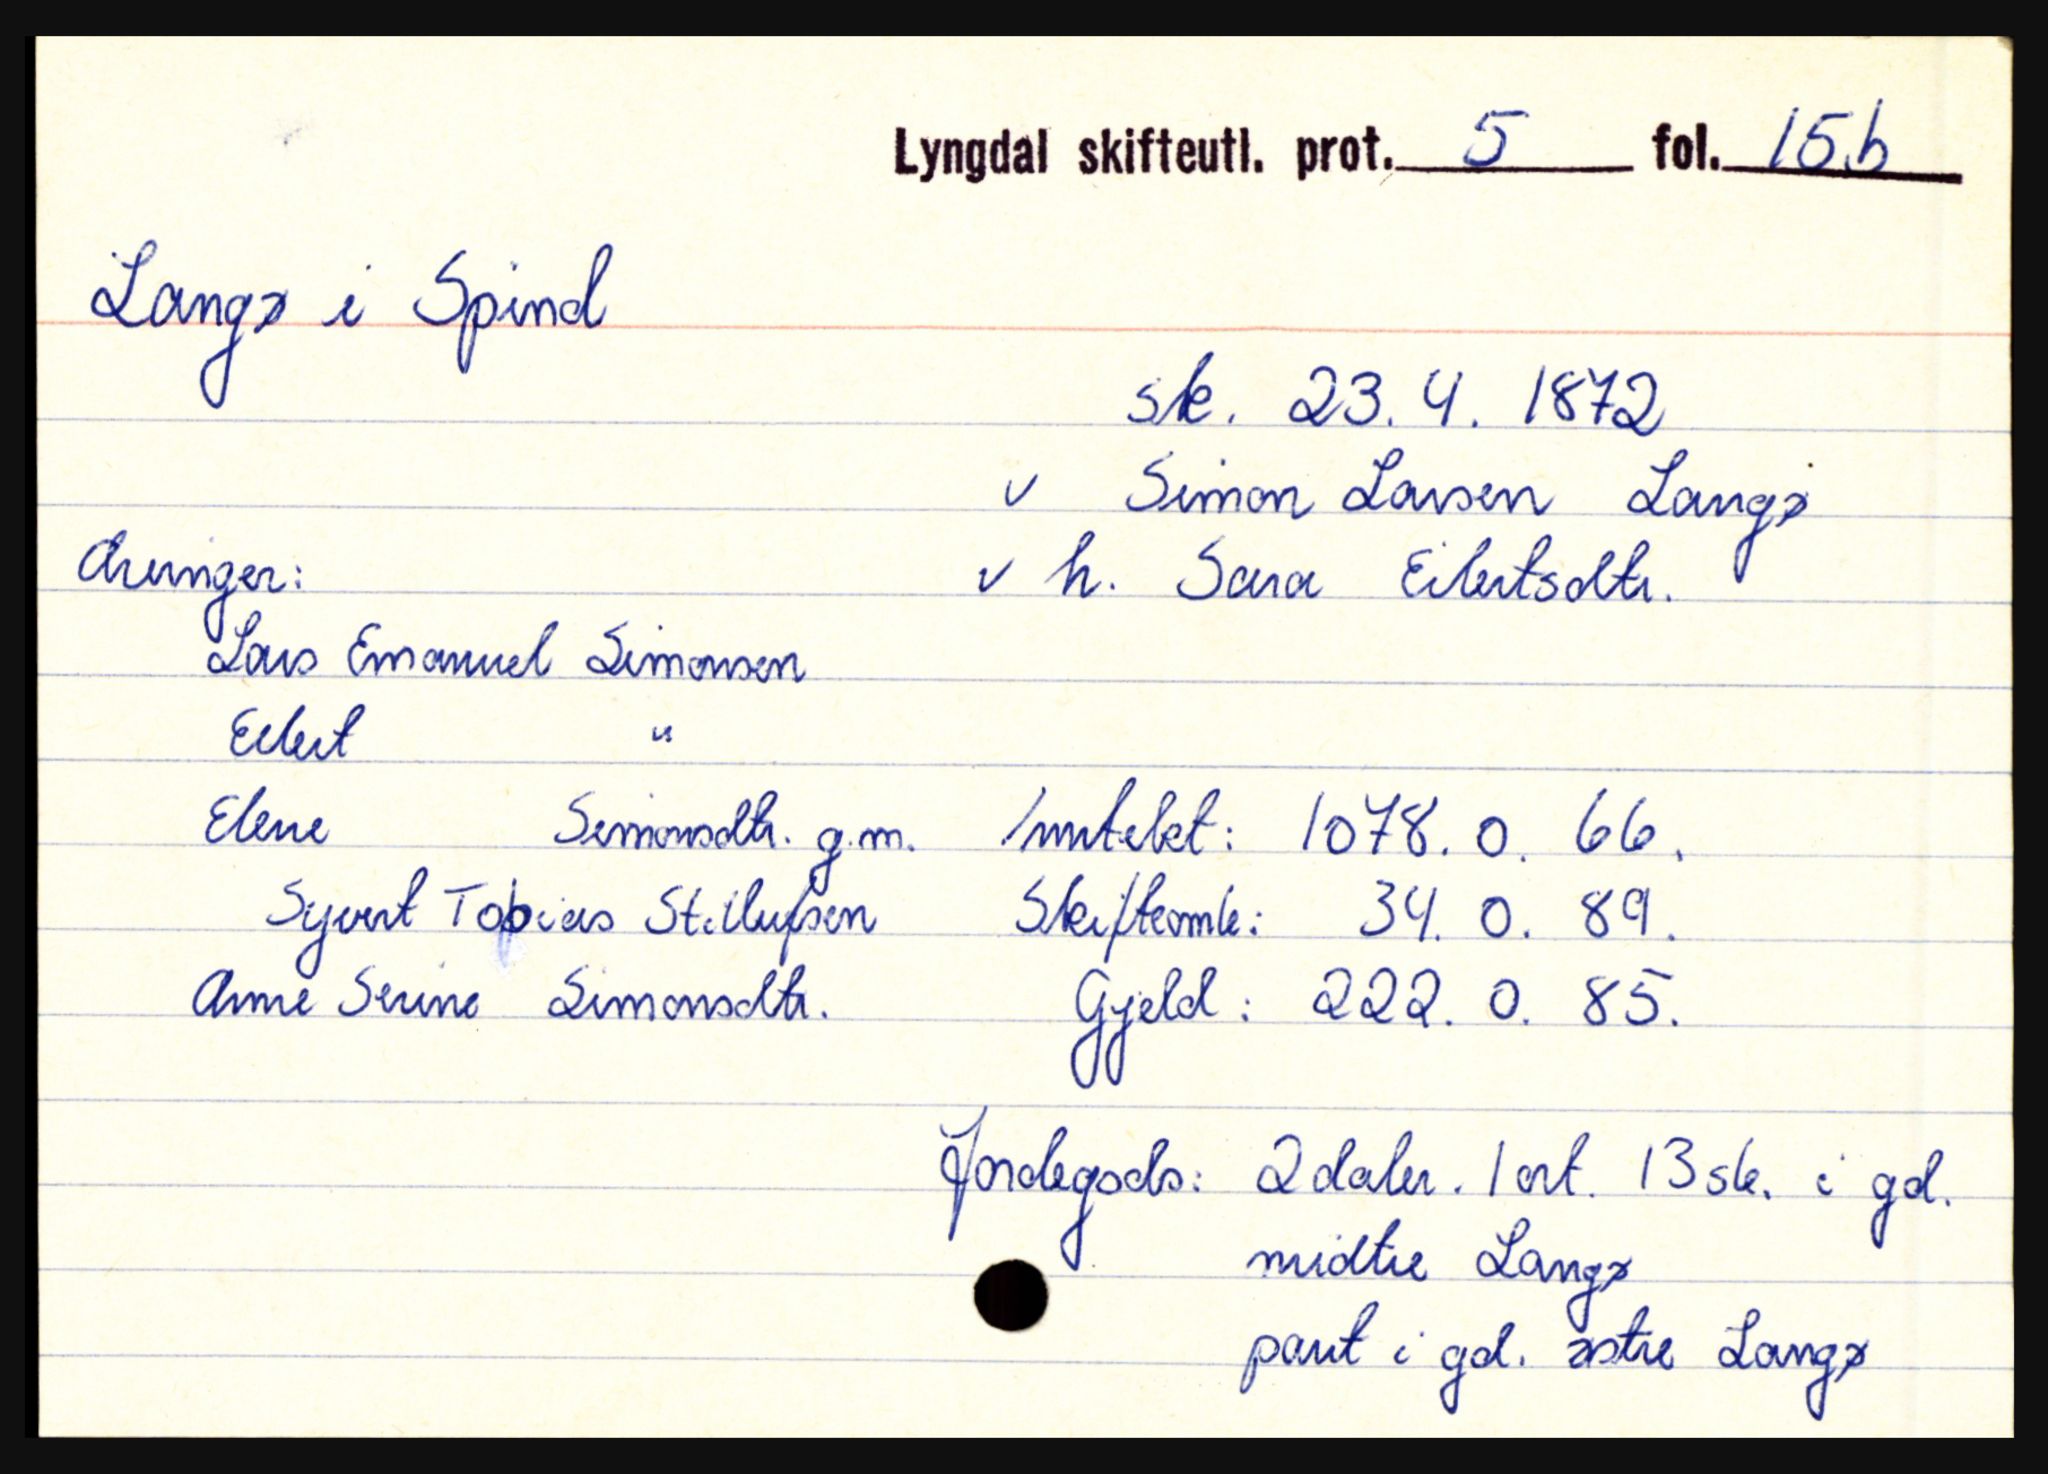 Lyngdal skifteutl. prot. 5 fol. 15.b
Langø i Spind
sk. 23.4.1872
v Simon Larsen Langø
Arvinger:
v h. Sara Eilertsdtr.
Lars Emanuel Simonsen
Eilert "
Elene Simonsdtr. g.m.
Syvert Tobias St. Ilufsen
Anne Serine Simonsdtr.
Inntekt: 1078. 0. 66.
Skifteomk: 34. 0. 89.
Gjeld: 222. 0. 85.
Jordegods: 2 daler. 1 ort. 13 sk. i gd.
midtre Langø
part i gd. østre Langø